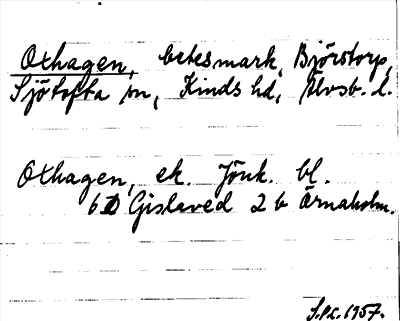 Oxhagen, betesmark, Björstorp,
Sjötofta sn, Kinds hd, Älvsb. l.
Oxhagen, ek. Jönk. bl.
6D Gislaved 2 b Årnaholm.
1957.